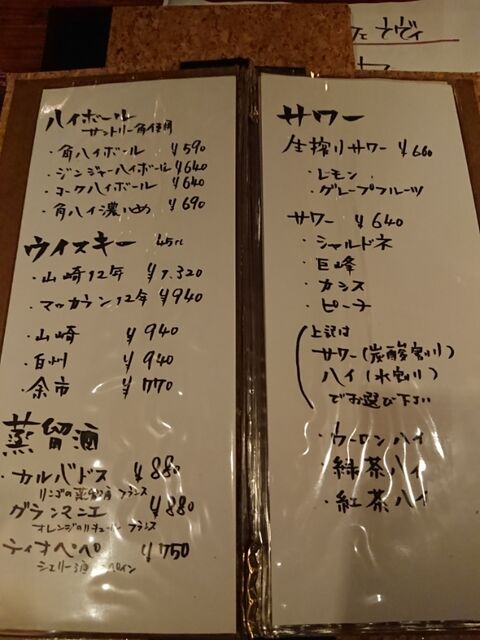 ハイボール
サントリー角使用
・角ハイボール ¥590
・ジンジャーハイボール ¥640
・コークハイボール ¥640
・角ハイ濃いめ ¥690
ウイスキー 45cc
・山崎12年 ¥1.320
・マッカラン12年 ¥940
・山崎 ¥940
・白州 ¥940
・余市 ¥770
蒸留酒
・カルバドス ¥880
りんごの蒸留酒 フランス
グランマニエ ¥880
オレンジのリキュール フランス
ティオペペ ¥750
シェリー酒 スペイン
サワー
生搾りサワー ¥660
・レモン
・グレープフルーツ
サワー ¥640
・シャルドネ
・巨峰
・カシス
・ピーチ
上記は
サワー(炭酸割り)
ハイ(水割り)
でお選び下さい
・ウーロンハイ
・緑茶ハイ
・紅茶ハイ